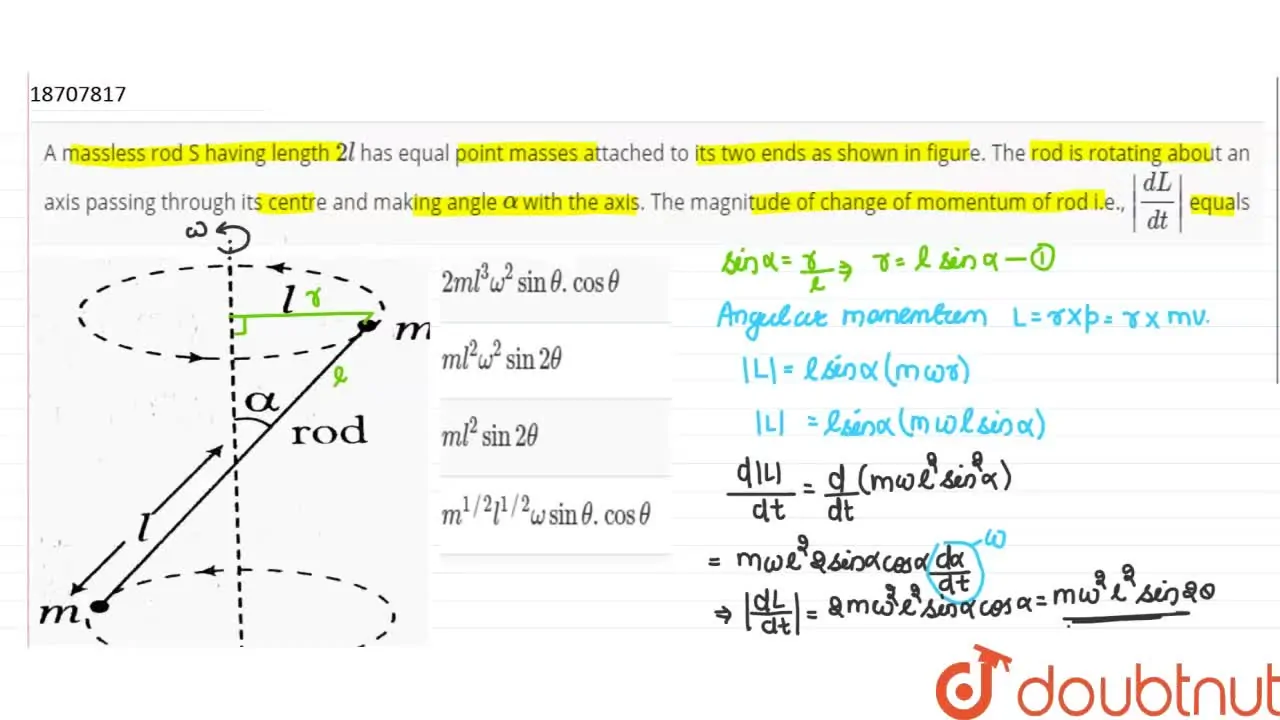 18707817
A massless rod S having length 2l has equal point masses attached to its two ends as shown in figure. The rod is rotating about an
axis passing through its centre and making angle α with the axis. The magnitude of change of momentum of rod i.e., |dL/dt| equals
ω
l r
m
l
α
rod
l
m
2ml³ω² sin θ. cos θ
ml²ω² sin 2θ
ml² sin 2θ
m^{1/2}l^{1/2}ω sin θ. cos θ
sin α = r/l ⇒ r = l sin α — ①
Angular momentum L = r×p = r × mv.
|L| = l sin α (mωr)
|L| = l sin α (mωl sin α)
d|L|/dt = d/dt (mωl² sin² α)
= mωl² 2 sin α cos α dα/dt ω
⇒ |dL/dt| = 2mω²l² sin α cos α = mω²l² sin 2θ
doubtnut